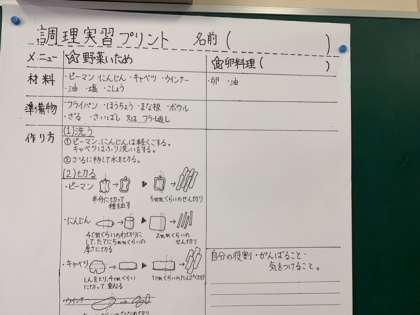 調理実習プリント 名前( )
メニュー ☆野菜いため ☆卵料理( )
材料 ・ピーマン・にんじん・キャベツ・ウインナー
・油 ・塩 ・こしょう
・卵 ・油
準備物 ・フライパン ・ほうちょう ・まな板 ・ボウル
・ざる ・さいばし 又は フライ返し
作り方 (1)洗う
①ピーマン、にんじんは軽くこする。
キャベツはふり洗いをする。
②ざるに移して水をきる。
(2)切る
・ピーマン
半分に切って
種を出す
5mmくらいのせん切り
・にんじん
4cmくらいのわ切りに
して、たてに5mmくらいの
厚さに切る
2mmくらいの
せん切り
・キャベツ
しんをとり、4cmくらい
に切って、重ねる
・ウインナー
自分の役割・がんばること・
気をつけること。